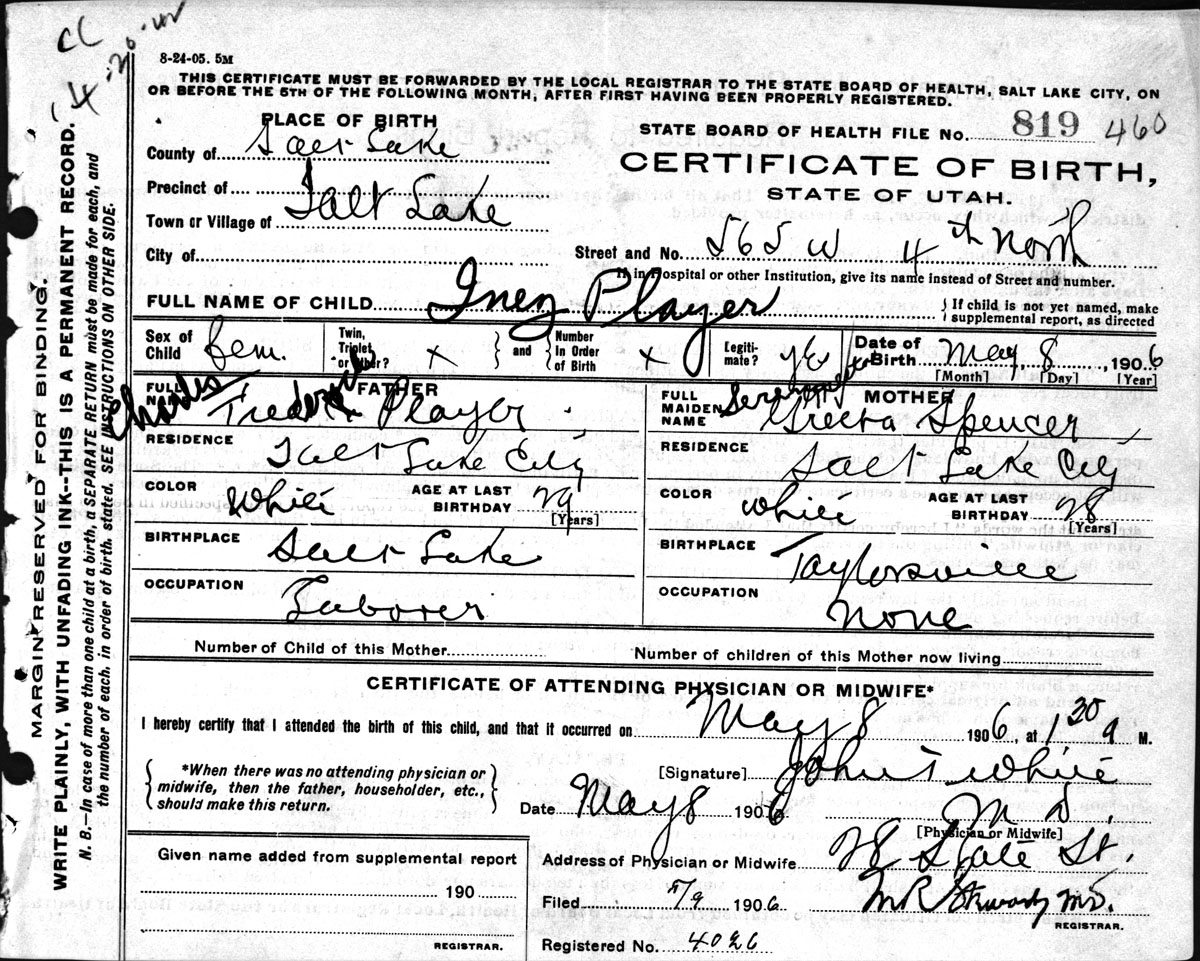 cc
8-24-05. 5M
THIS CERTIFICATE MUST BE FORWARDED BY THE LOCAL REGISTRAR TO THE STATE BOARD OF HEALTH, SALT LAKE CITY, ON
OR BEFORE THE 5TH OF THE FOLLOWING MONTH, AFTER FIRST HAVING BEEN PROPERLY REGISTERED.
PLACE OF BIRTH
County of Salt Lake
Precinct of
Town or Village of Salt Lake
City of
STATE BOARD OF HEALTH FILE No. 819 460
CERTIFICATE OF BIRTH,
STATE OF UTAH.
Street and No. 565 W 4th North
If in Hospital or other Institution, give its name instead of Street and number.
FULL NAME OF CHILD Inez Player
If child is not yet named, make
supplemental report, as directed
Sex of Child fem. Twin, Triplet or Other? x and Number In Order of Birth x Legiti-mate? yes Date of Birth May, 8, 1906
[Month] [Day] [Year]
FATHER
FULL NAME Charles Frederick Player
RESIDENCE
Salt Lake City
COLOR White AGE AT LAST BIRTHDAY 29
[Years]
BIRTHPLACE
Salt Lake
OCCUPATION
Laborer
MOTHER
FULL MAIDEN NAME Gretta Spencer
RESIDENCE
Salt Lake City
COLOR White AGE AT LAST BIRTHDAY 28
[Years]
BIRTHPLACE
Taylorsville
OCCUPATION
None
Number of Child of this Mother
Number of children of this Mother now living
CERTIFICATE OF ATTENDING PHYSICIAN OR MIDWIFE*
I hereby certify that I attended the birth of this child, and that it occurred on May 8 1906, at 1,20 a M.
*When there was no attending physician or
midwife, then the father, householder, etc.,
should make this return.
[Signature] John T White
Date May 8 1906 M D.
[Physician or Midwife]
Address of Physician or Midwife 28 State St.
Filed 5/9 1906
M.D.
REGISTRAR.
Registered No. 4026
Given name added from supplemental report
190
REGISTRAR.
MARGIN RESERVED FOR BINDING.
WRITE PLAINLY, WITH UNFADING INK--THIS IS A PERMANENT RECORD.
N. B.--In case of more than one child at a birth, a SEPARATE RETURN must be made for each, and
the number of each, in order of birth, stated. SEE INSTRUCTIONS ON OTHER SIDE.